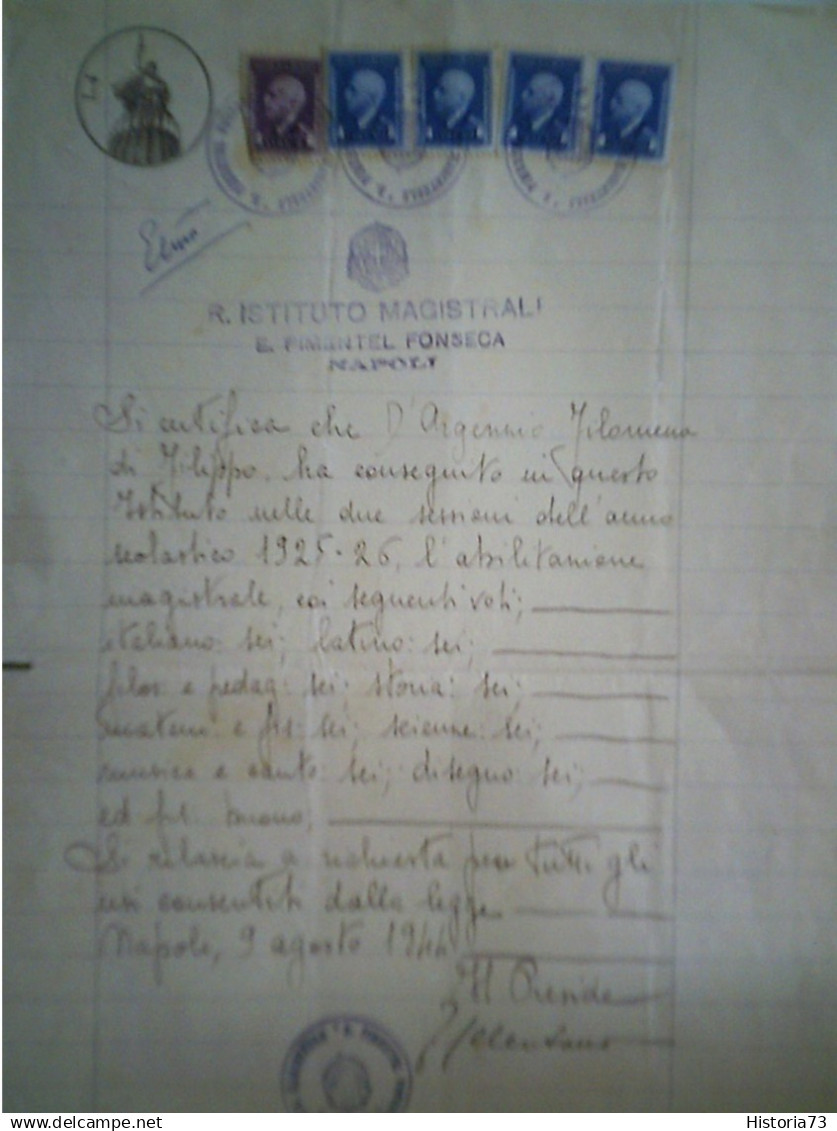 R. ISTITUTO MAGISTRALI
E. PIMENTEL FONSECA
NAPOLI
Si certifica che D'Argennio Filomena
di Filippo, ha conseguito in questo
Istituto nelle due sessioni dell'anno
scolastico 1925-26, l'abilitazione
magistrale, coi seguenti voti;
italiano: sei; latino: sei;
filos e pedag: sei; storia: sei;
matem: e fis: sei; scienze: sei;
musica e canto: sei; disegno: sei;
ed fis. buono;
Si rilascia a richiesta per tutti gli
usi consentiti dalla legge
Napoli, 9 agosto 1944
Il Preside
delcampe.net
Historia73